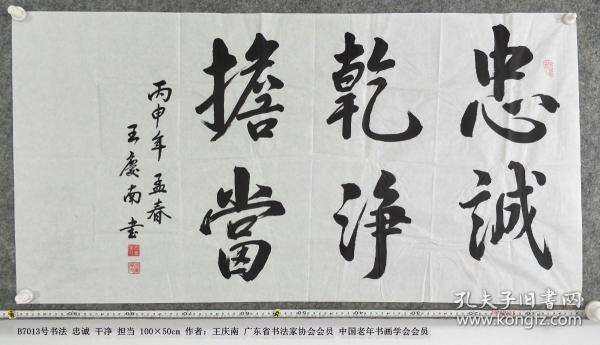 忠誠
乾淨
擔當
丙申年孟春
王慶南书
孔夫子旧书网
www.kongfz.com
B7013号书法 忠诚 干净 担当 100×50cm 作者：王庆南 广东省书法家协会会员 中国老年书画学会会员